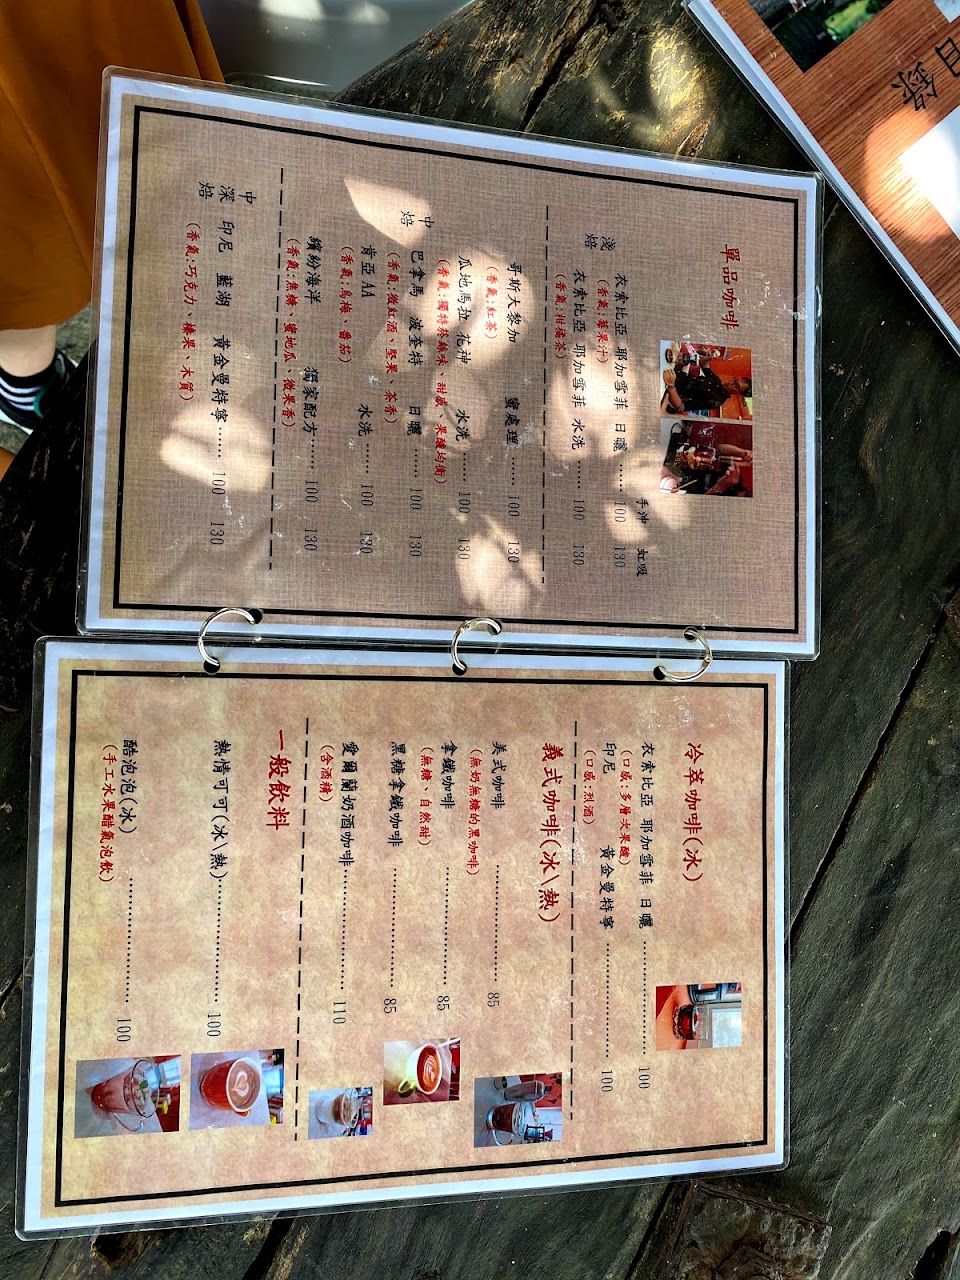 單品咖啡
手沖 虹吸
淺焙
衣索比亞 耶加雪菲 日曬 ...... 100 130
(香氣:莓果汁)
衣索比亞 耶加雪菲 水洗 ...... 100 130
(香氣:柑橘茶)
中焙
哥斯大黎加 蜜處理 ...... 100 130
(香氣:紅茶)
瓜地馬拉 花神 水洗 ...... 100 130
(香氣:獨特菸絲味、甜感、果酸均衡)
巴拿馬 波奎特 日曬 ...... 100 130
(香氣:微紅酒、堅果、茶香)
肯亞AA 水洗 ...... 100 130
(香氣:烏梅、番茄)
繽紛海洋 獨家配方 ...... 100 130
(香氣:焦糖、蜜地瓜、微果香)
中深焙
印尼 藍湖 黃金曼特寧 ...... 100 130
(香氣:巧克力、榛果、木質)
冷萃咖啡(冰)
衣索比亞 耶加雪菲 日曬 .................. 100
(口感:多層次果酸)
印尼 黃金曼特寧 .................. 100
(口感:烈酒)
義式咖啡(冰\熱)
美式咖啡 .................. 85
(無奶無糖的黑咖啡)
拿鐵咖啡 .................. 85
(無糖、自然甜)
黑糖拿鐵咖啡 .................. 85
愛爾蘭奶酒咖啡 .................. 110
(含酒精)
一般飲料
熱情可可(冰\熱) .................. 100
酷泡泡(冰) .................. 100
(手工水果醋氣泡飲)
目錄